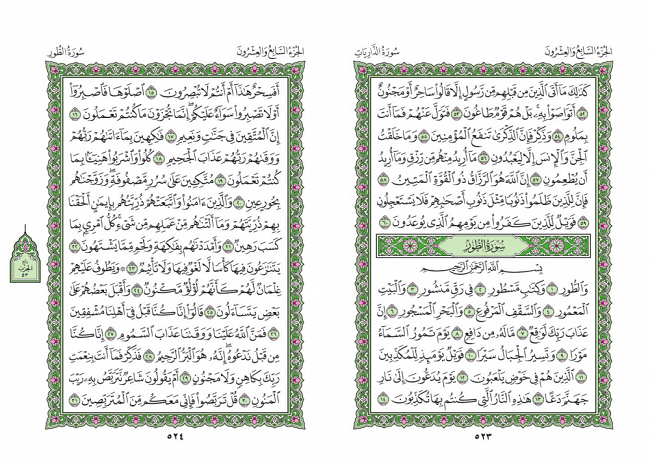 الجُزءُ السَّابِعُ وَالعِشْرُونَ
سُورَةُ الذَّارِيَاتِ
كَذَٰلِكَ مَآ أَتَى ٱلَّذِينَ مِن قَبْلِهِم مِّن رَّسُولٍ إِلَّا قَالُوا۟ سَاحِرٌ أَوْ مَجْنُونٌ
٥٢ أَتَوَاصَوْا۟ بِهِۦ ۚ بَلْ هُمْ قَوْمٌ طَاغُونَ ٥٣ فَتَوَلَّ عَنْهُمْ فَمَآ أَنتَ
بِمَلُومٍ ٥٤ وَذَكِّرْ فَإِنَّ ٱلذِّكْرَىٰ تَنفَعُ ٱلْمُؤْمِنِينَ ٥٥ وَمَا خَلَقْتُ
ٱلْجِنَّ وَٱلْإِنسَ إِلَّا لِيَعْبُدُونِ ٥٦ مَآ أُرِيدُ مِنْهُم مِّن رِّزْقٍ وَمَآ أُرِيدُ
أَن يُطْعِمُونِ ٥٧ إِنَّ ٱللَّهَ هُوَ ٱلرَّزَّاقُ ذُو ٱلْقُوَّةِ ٱلْمَتِينُ ٥٨
فَإِنَّ لِلَّذِينَ ظَلَمُوا۟ ذَنُوبًا مِّثْلَ ذَنُوبِ أَصْحَٰبِهِمْ فَلَا يَسْتَعْجِلُونِ
٥٩ فَوَيْلٌ لِّلَّذِينَ كَفَرُوا۟ مِن يَوْمِهِمُ ٱلَّذِى يُوعَدُونَ ٦٠
سُورَةُ الطُّورِ
بِسْمِ ٱللَّهِ ٱلرَّحْمَٰنِ ٱلرَّحِيمِ
وَٱلطُّورِ ١ وَكِتَٰبٍ مَّسْطُورٍ ٢ فِى رَقٍّ مَّنشُورٍ ٣ وَٱلْبَيْتِ
ٱلْمَعْمُورِ ٤ وَٱلسَّقْفِ ٱلْمَرْفُوعِ ٥ وَٱلْبَحْرِ ٱلْمَسْجُورِ ٦ إِنَّ
عَذَابَ رَبِّكَ لَوَٰقِعٌ ٧ مَّا لَهُۥ مِن دَافِعٍ ٨ يَوْمَ تَمُورُ ٱلسَّمَآءُ
مَوْرًا ٩ وَتَسِيرُ ٱلْجِبَالُ سَيْرًا ١٠ فَوَيْلٌ يَوْمَئِذٍ لِّلْمُكَذِّبِينَ
١١ ٱلَّذِينَ هُمْ فِى خَوْضٍ يَلْعَبُونَ ١٢ يَوْمَ يُدَعُّونَ إِلَىٰ نَارِ
جَهَنَّمَ دَعًّا ١٣ هَٰذِهِ ٱلنَّارُ ٱلَّتِى كُنتُم بِهَا تُكَذِّبُونَ ١٤
٥٢٣
الجُزءُ السَّابِعُ وَالعِشْرُونَ
سُورَةُ الطُّورِ
أَفَسِحْرٌ هَٰذَآ أَمْ أَنتُمْ لَا تُبْصِرُونَ ١٥ ٱصْلَوْهَا فَٱصْبِرُوٓا۟
أَوْ لَا تَصْبِرُوا۟ سَوَآءٌ عَلَيْكُمْ ۖ إِنَّمَا تُجْزَوْنَ مَا كُنتُمْ تَعْمَلُونَ ١٦
إِنَّ ٱلْمُتَّقِينَ فِى جَنَّٰتٍ وَنَعِيمٍ ١٧ فَٰكِهِينَ بِمَآ ءَاتَىٰهُمْ رَبُّهُمْ
وَوَقَىٰهُمْ رَبُّهُمْ عَذَابَ ٱلْجَحِيمِ ١٨ كُلُوا۟ وَٱشْرَبُوا۟ هَنِيٓـًٔا بِمَا
كُنتُمْ تَعْمَلُونَ ١٩ مُتَّكِـِٔينَ عَلَىٰ سُرُرٍ مَّصْفُوفَةٍ ۖ وَزَوَّجْنَٰهُم
بِحُورٍ عِينٍ ٢٠ وَٱلَّذِينَ ءَامَنُوا۟ وَٱتَّبَعَتْهُمْ ذُرِّيَّتُهُم بِإِيمَٰنٍ أَلْحَقْنَا
بِهِمْ ذُرِّيَّتَهُمْ وَمَآ أَلَتْنَٰهُم مِّنْ عَمَلِهِم مِّن شَىْءٍ ۚ كُلُّ ٱمْرِئٍۭ بِمَا
كَسَبَ رَهِينٌ ٢١ وَأَمْدَدْنَٰهُم بِفَٰكِهَةٍ وَلَحْمٍ مِّمَّا يَشْتَهُونَ ٢٢
يَتَنَٰزَعُونَ فِيهَا كَأْسًا لَّا لَغْوٌ فِيهَا وَلَا تَأْثِيمٌ ٢٣ ۞ وَيَطُوفُ عَلَيْهِمْ
غِلْمَانٌ لَّهُمْ كَأَنَّهُمْ لُؤْلُؤٌ مَّكْنُونٌ ٢٤ وَأَقْبَلَ بَعْضُهُمْ عَلَىٰ
بَعْضٍ يَتَسَآءَلُونَ ٢٥ قَالُوٓا۟ إِنَّا كُنَّا قَبْلُ فِىٓ أَهْلِنَا مُشْفِقِينَ
٢٦ فَمَنَّ ٱللَّهُ عَلَيْنَا وَوَقَىٰنَا عَذَابَ ٱلسَّمُومِ ٢٧ إِنَّا كُنَّا
مِن قَبْلُ نَدْعُوهُ ۖ إِنَّهُۥ هُوَ ٱلْبَرُّ ٱلرَّحِيمُ ٢٨ فَذَكِّرْ فَمَآ أَنتَ بِنِعْمَتِ
رَبِّكَ بِكَاهِنٍ وَلَا مَجْنُونٍ ٢٩ أَمْ يَقُولُونَ شَاعِرٌ نَّتَرَبَّصُ بِهِۦ رَيْبَ
ٱلْمَنُونِ ٣٠ قُلْ تَرَبَّصُوا۟ فَإِنِّى مَعَكُم مِّنَ ٱلْمُتَرَبِّصِينَ ٣١
٥٢٤
الحِزْبُ
٥٣